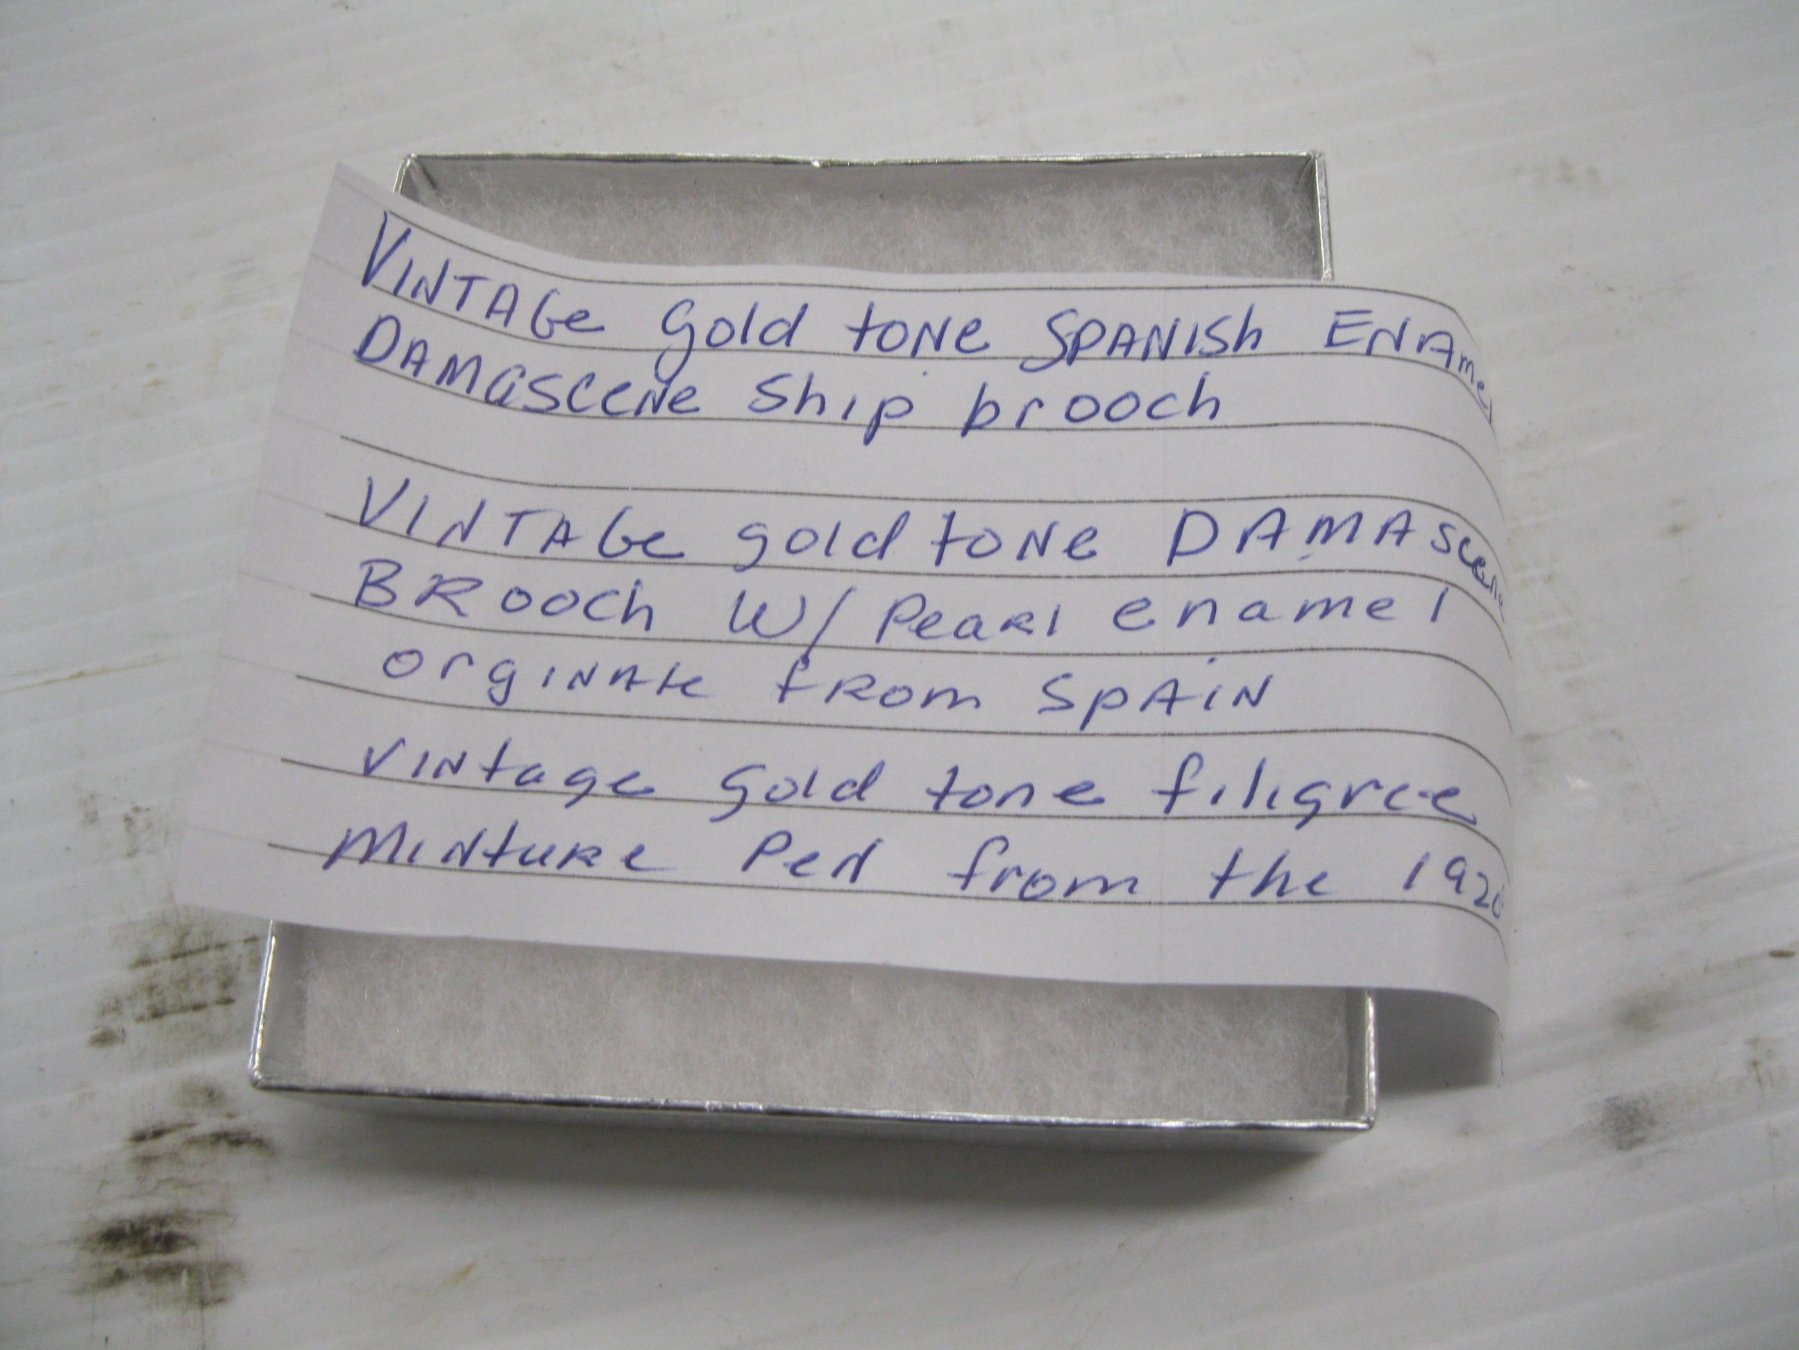 Vintage gold tone Spanish Enamel
Damascene Ship brooch
Vintage gold tone Damascene
Brooch w/ Pearl enamel
orginate from Spain
vintage gold tone filigree
minture Pen from the 1920